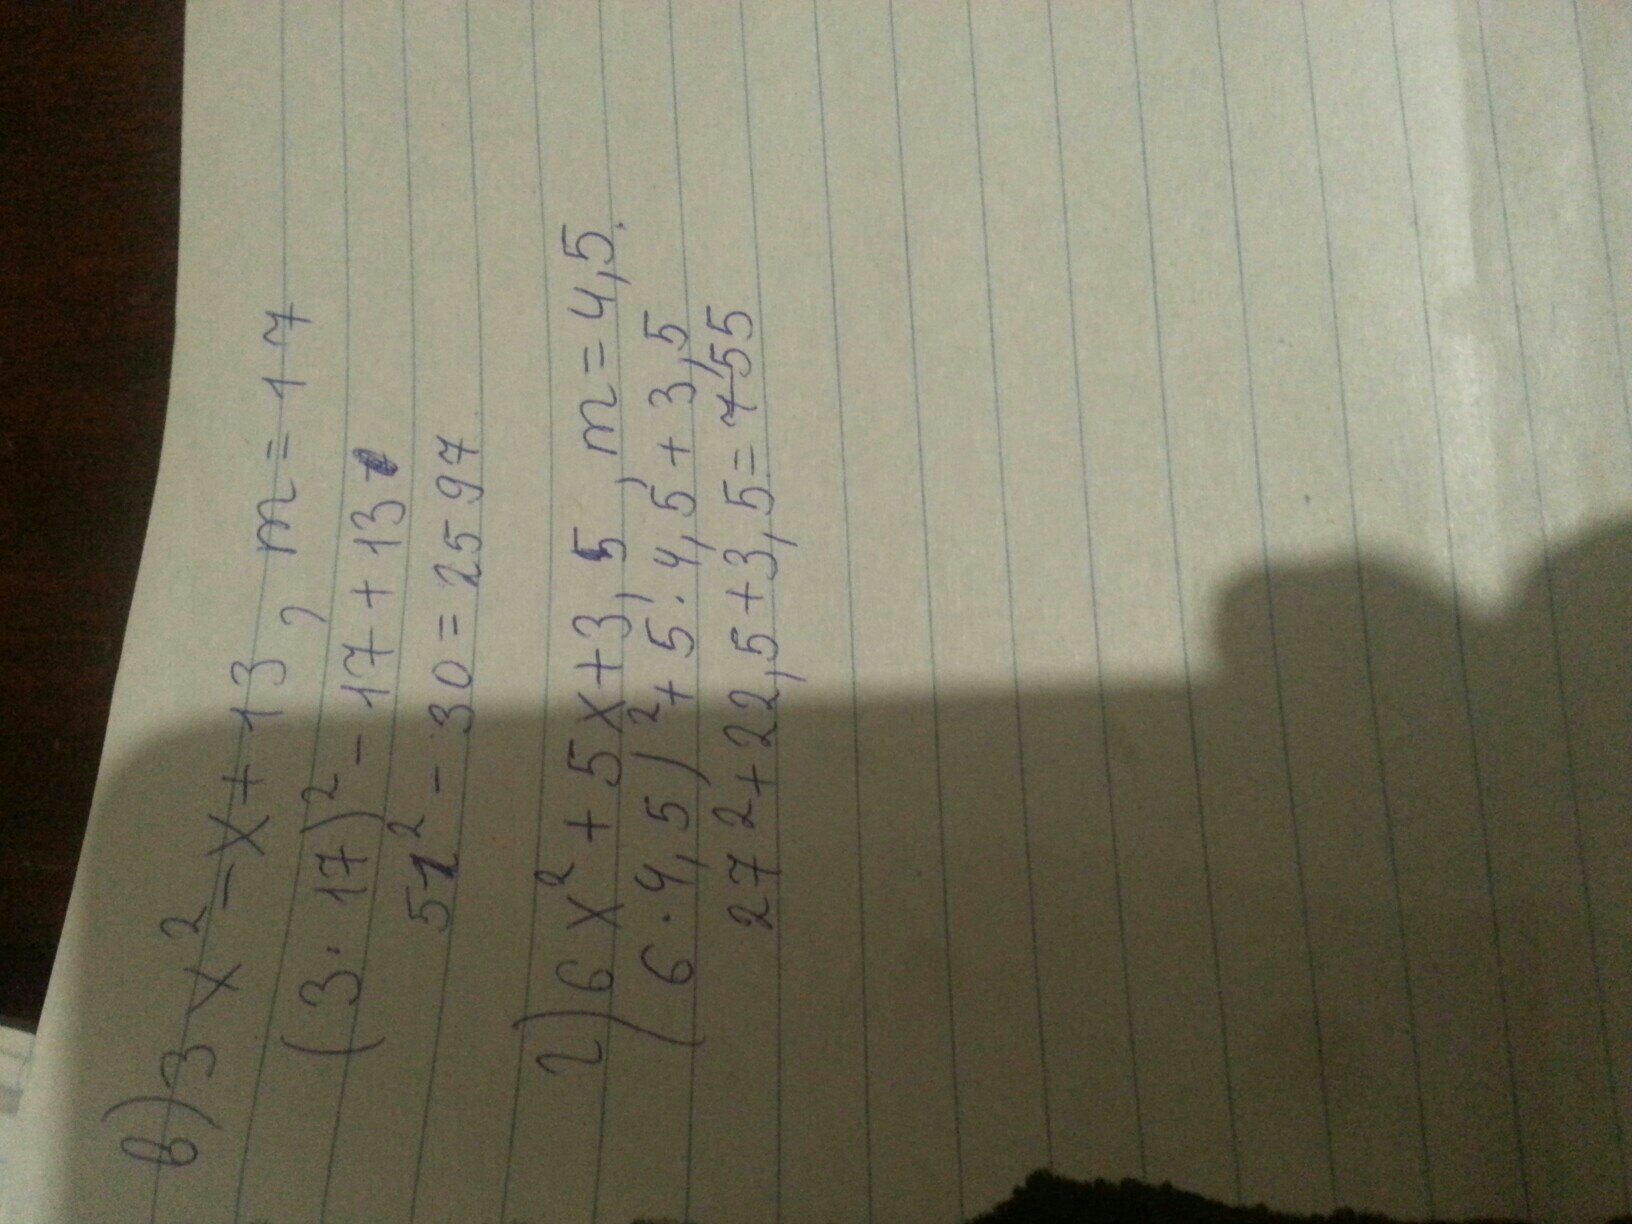 в) 3x² - x + 13, m = 17
(3 · 17)² - 17 + 13
51² - 30 = 2597
г) 6x² + 5x + 3,5, m = 4,5.
(6 · 4,5)² + 5 · 4,5 + 3,5
27² + 22,5 + 3,5 = 755